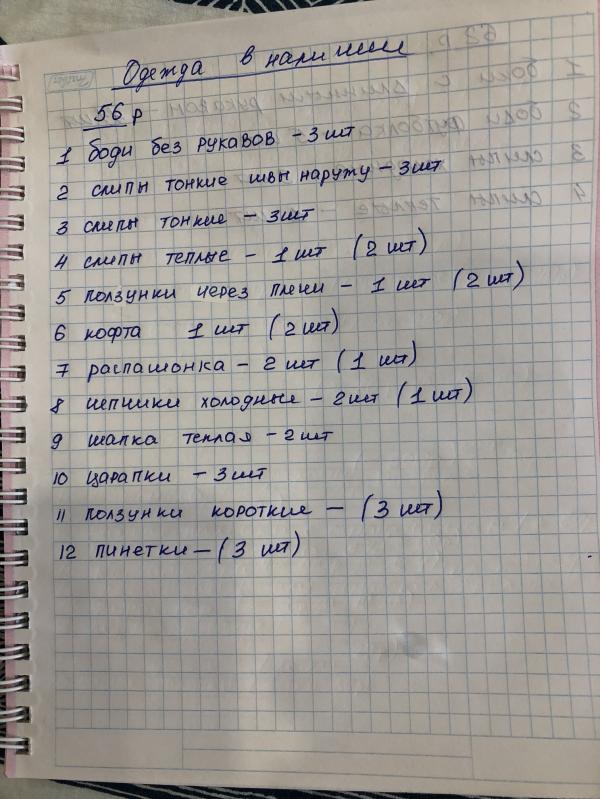 Одежда в наличии
56 р
1 боди без рукавов - 3 шт
2 слипы тонкие швы наружу - 3шт
3 слипы тонкие - 3шт
4 слипы теплые - 1 шт (2 шт)
5 ползунки через плечи - 1 шт (2 шт)
6 кофта 1 шт (2 шт)
7 распашонка - 2 шт (1 шт)
8 чепчики холодные - 2шт (1 шт)
9 шапка теплая - 2 шт
10 царапки - 3 шт
11 ползунки короткие - (3 шт)
12 пинетки - (3 шт)